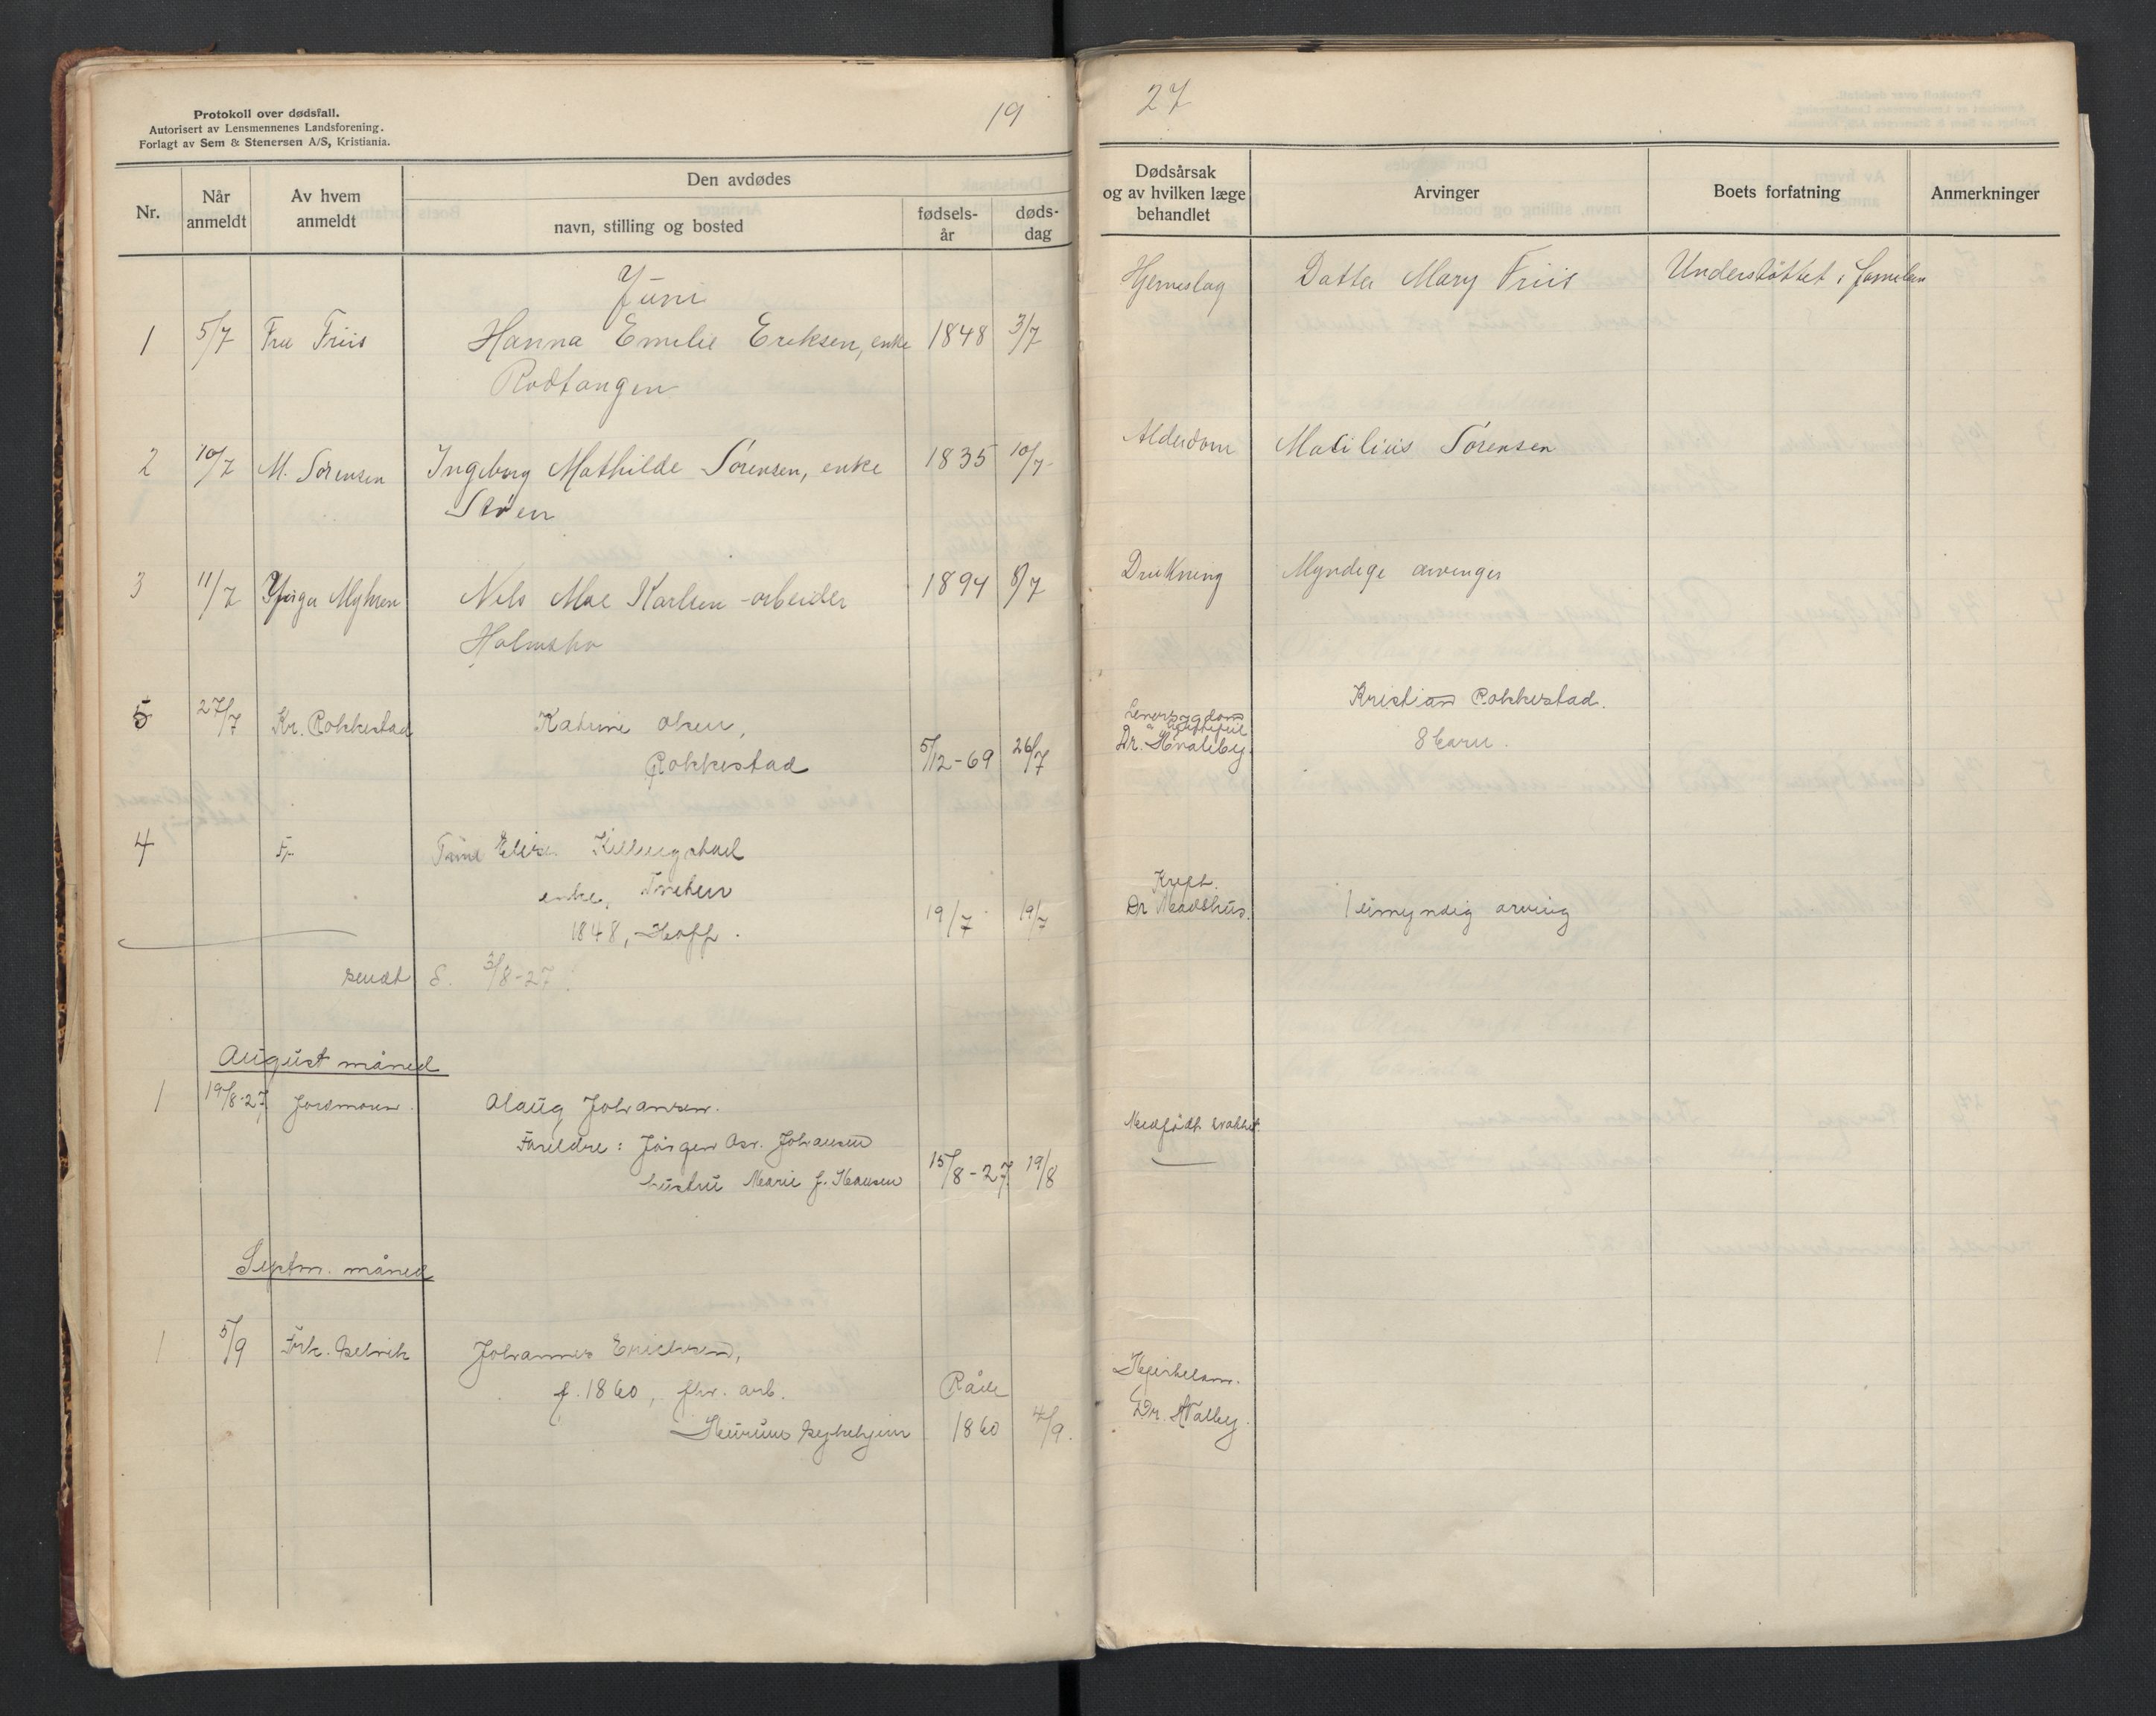 Protokoll over dødsfall.
Autorisert av Lensmennenes Landsforening.
Forlagt av Sem & Stenersen A/S, Kristiania.
19
27
Nr.
Når anmeldt
Av hvem anmeldt
Den avdødes
navn, stilling og bosted
fødsels-år
døds-dag
Dødsårsak og av hvilken læge behandlet
Arvinger
Boets forfatning
Anmerkninger
Juni
1 5/7 Fru Friis Hanna Emilie Eriksen, enke 1848 3/7 Hjerneslag Datter Mary Friis Understøttet i familien
Rødtangen
2 10/7 M. Sørensen Ingeborg Mathilde Sørensen, enke 1835 10/7 Alderdom Matilius Sørensen
Støen
3 11/7 Myhren Nils Moe Karlsen - arbeider 1894 8/7 Drukning Myndige arvinger
Holmsbo
5 27/7 Kr. Rokkestad Katrine Olsen,
Rokkestad 5/12-69 26/7
Leversygdom
Dr. Hvalby
Kristian Rokkestad.
8 barn.
4 Fr. Trine Elise Killingstad
enke, Tveten
1848, Hoff. 19/7 19/7
Kreft.
Dr
1 umyndig arving
sendt S. 3/8-27.
August måned
1 19/8-27 Jordmoren. Olaug Johansen.
Foreldre: Jørgen Osv. Johansen
hustru Marie f. Hansen 15/8-27. 19/8
Medfødt svakhet
Septm. måned
1 5/9 Frk. Selvik Johannes Erichsen,
f. 1860, fhv. arb. Råde
Hurum sykehjem 1860 4/9.
Dr. Hvalby.